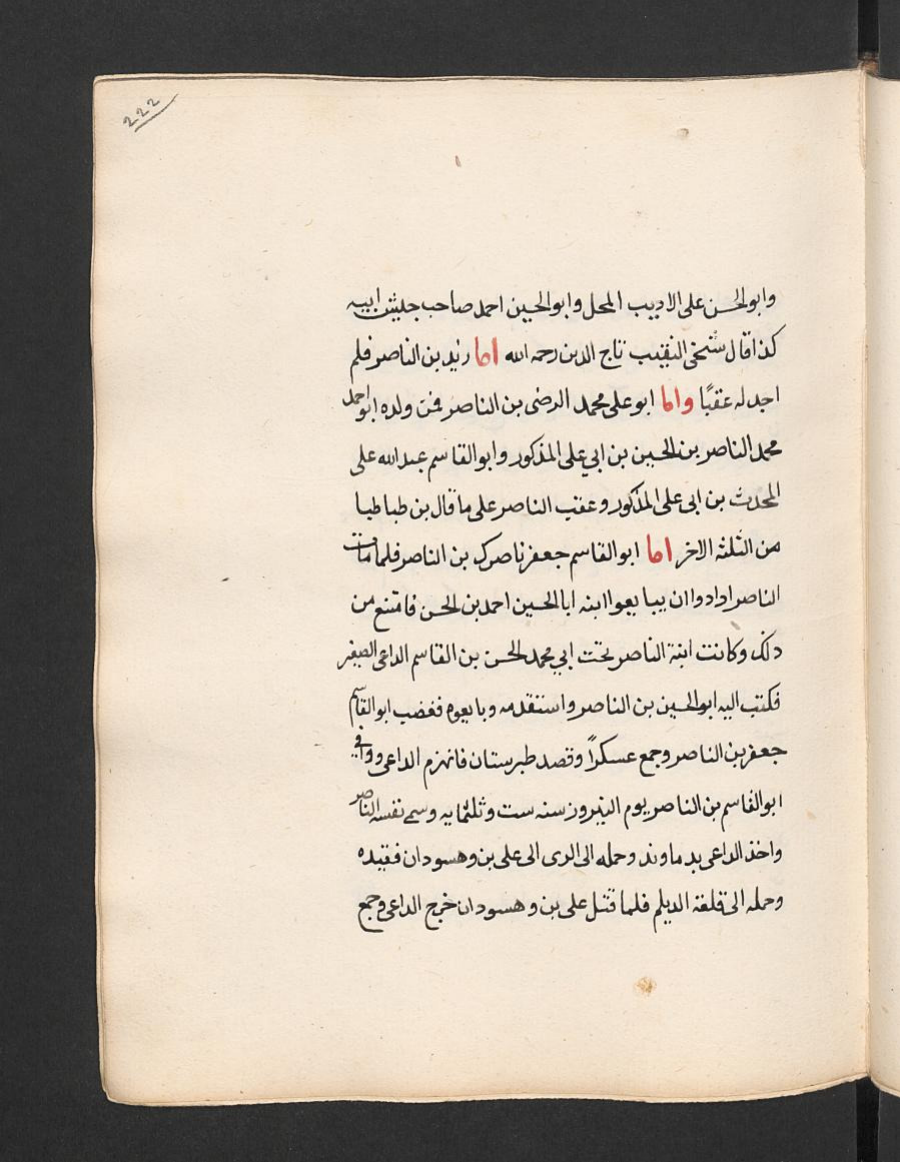 222
وابو الحسن على الاديب المحل وابو الحسين احمد صاحب جليش ابيه
كذا قال شيخى النقيب تاج الدين رحمه الله اما زيد بن الناصر فلم
اجد له عقبًا واما ابو على محمد الرضى بن الناصر فمن ولده ابو احمد
محمد الناصر بن الحسين بن ابي على المذكور وابو القاسم عبد الله على
المحدث بن ابى على المذكور وعقب الناصر على ما قال بن طباطبا
من الثلثه الاخر اما ابو القاسم جعفر ناصرك بن الناصر فلما مات
الناصر ارادوا ان يبايعوا ابنه ابا الحسين احمد بن الحسن فامتنع من
ذلك وكانت ابنة الناصر تحت ابي محمد الحسن بن القاسم الداعى الصغير
فكتب اليه ابو الحسين بن الناصر واستقدمه وبايعوه فغضب ابو القاسم
جعفر بن الناصر وجمع عسكرًا وقصد طبرستان فانهزم الداعى ووافى
ابو القاسم بن الناصر يوم النيروز سنه ست وثلثمايه وسمى نفسه الناصر
واخذ الداعى بدماوند وحمله الى الرى الى على بن وهسودان فقيده
وحمله الى قلعة الديلم فلما قتل على بن وهسودان خرج الداعى وجمع